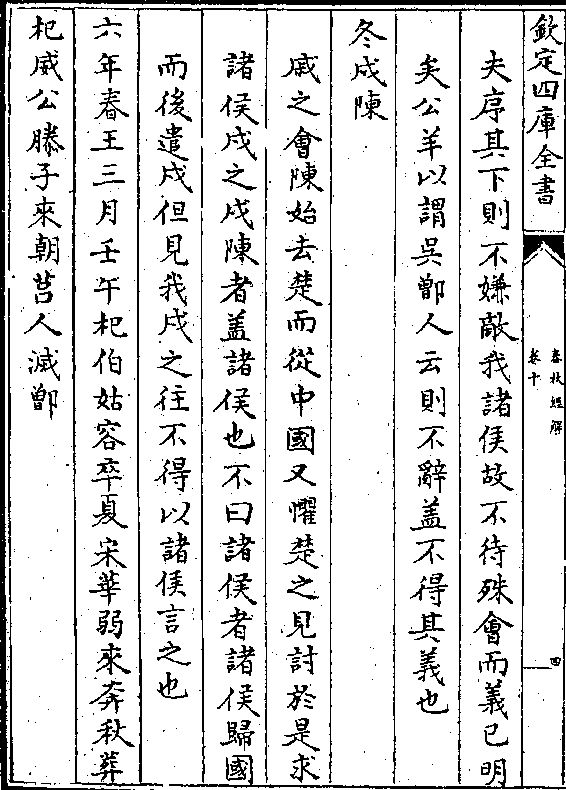 欽定四庫全書
春秋經解
卷十
四
夫序其下則不嫌敵我諸侯故不待殊會而義已明
矣公羊以謂吳鄫人云則不辭盖不得其義也
冬戍陳
戚之會陳始去楚而從中國又懼楚之見討於是求
諸侯戍之戍陳者盖諸侯也不曰諸侯者諸侯歸國
而後遣戍但見我戍之往不得以諸侯言之也
六年春王三月壬午杞伯姑容卒夏宋華弱來奔秋葬
杞威公滕子來朝莒人滅鄫